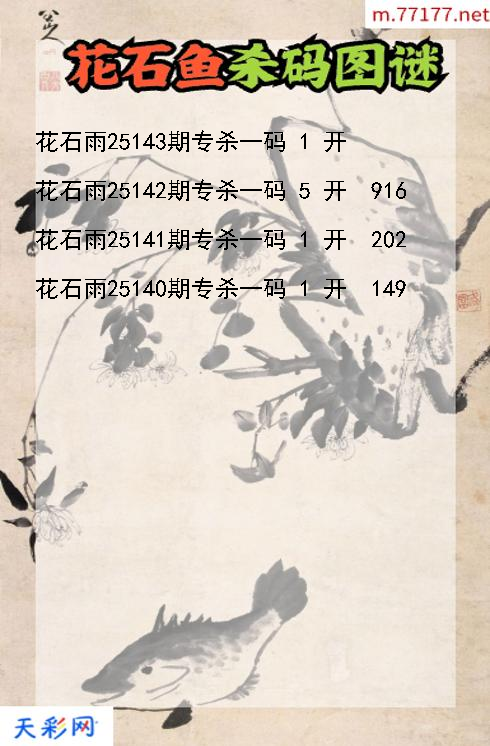 m.77177.net
八
花石鱼杀码图谜
花石雨25143期专杀一码 1 开
花石雨25142期专杀一码 5 开 916
花石雨25141期专杀一码 1 开 202
花石雨25140期专杀一码 1 开 149
天彩网